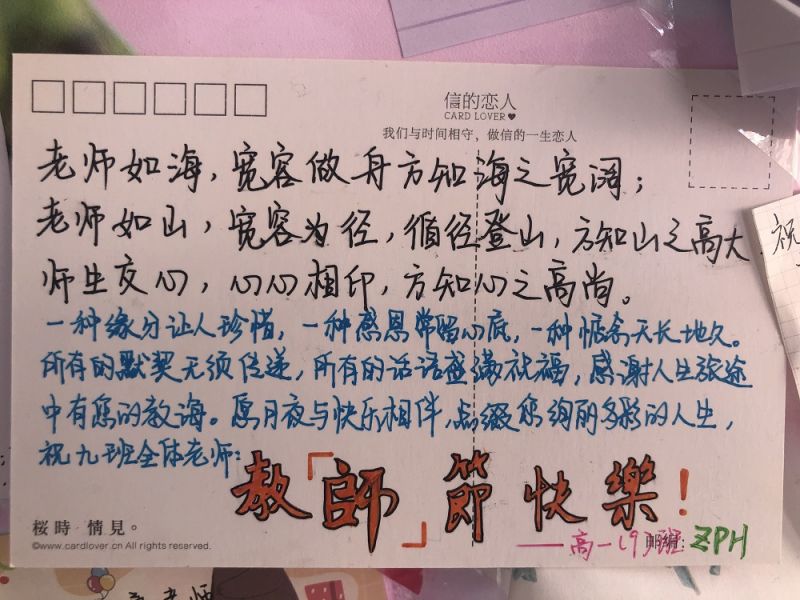 信的恋人
CARD LOVER
我们与时间相守，做信的一生恋人
老师如海，宽容做舟方知海之宽阔；
老师如山，宽容为径，循径登山，方知山之高大
师生交心，心心相印，方知心之高尚。
一种缘分让人珍惜，一种感恩常留心底，一种惦念天长地久。
所有的默契无须传递，所有的话语盛满祝福，感谢人生旅途
中有您的教诲。愿月夜与快乐相伴，点缀您绚丽多彩的人生，
祝九班全体老师：
教「師」節快樂！
——高一（9）班
邮编：
ZPH
桜時·情見。
©www.cardlover.cn All rights reserved.
祝
老师